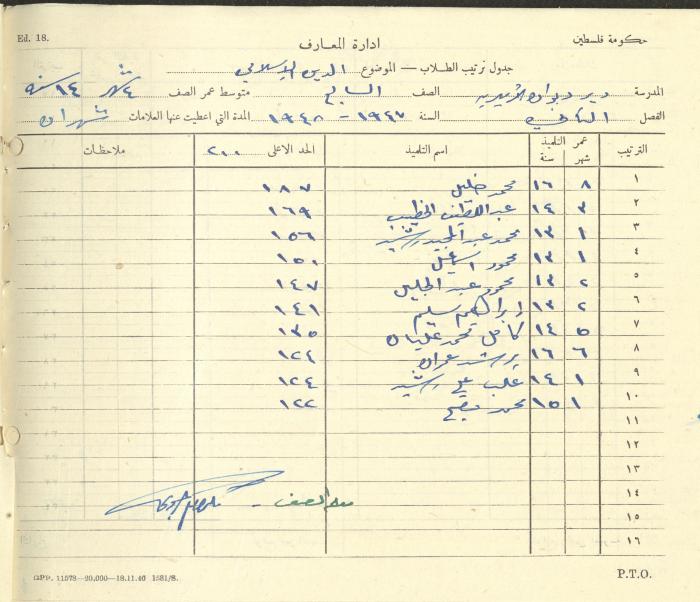 Ed. 18.
حكومة فلسطين
ادارة المعارف
جدول ترتيب الطلاب — الموضوع الدين الإسلامي
المدرسة دير ديوان الأميرية الصف السابع متوسط عمر الصف ١٤ سنة
الفصل الثاني السنة ١٩٤٧ - ١٩٤٨ المدة التي اعطيت عنها العلامات شهران
الترتيب عمر التلميذ شهر سنة اسم التلميذ الحد الاعلى ٢٠٠ ملاحظات
١ ٨ ١٦ محمد خليل ١٨٧
٢ ٣ ١٤ عبد اللطيف الخطيب ١٦٩
٣ ١ ١٣ محمد عبد المجيد رشيد ١٥٦
٤ ١ ١٣ محمود اسماعيل ١٥٠
٥ ٢ ١٣ محمود عبد الجليل ١٤٧
٦ ٢ ١٣ ابراهيم سليم ١٤١
٧ ٥ ١٤ كامل محمد عليان ١٣٥
٨ ٦ ١٦ عمران ١٢٤
٩ ١ ١٤ علي رشيد ١٢٤
١٠ ١ ١٥ محمد ١٢٢
١١
١٢
١٣
١٤ معلم الصف -
١٥
١٦
GPP. 11578—20,000—18.11.46 1581/S.
P.T.O.